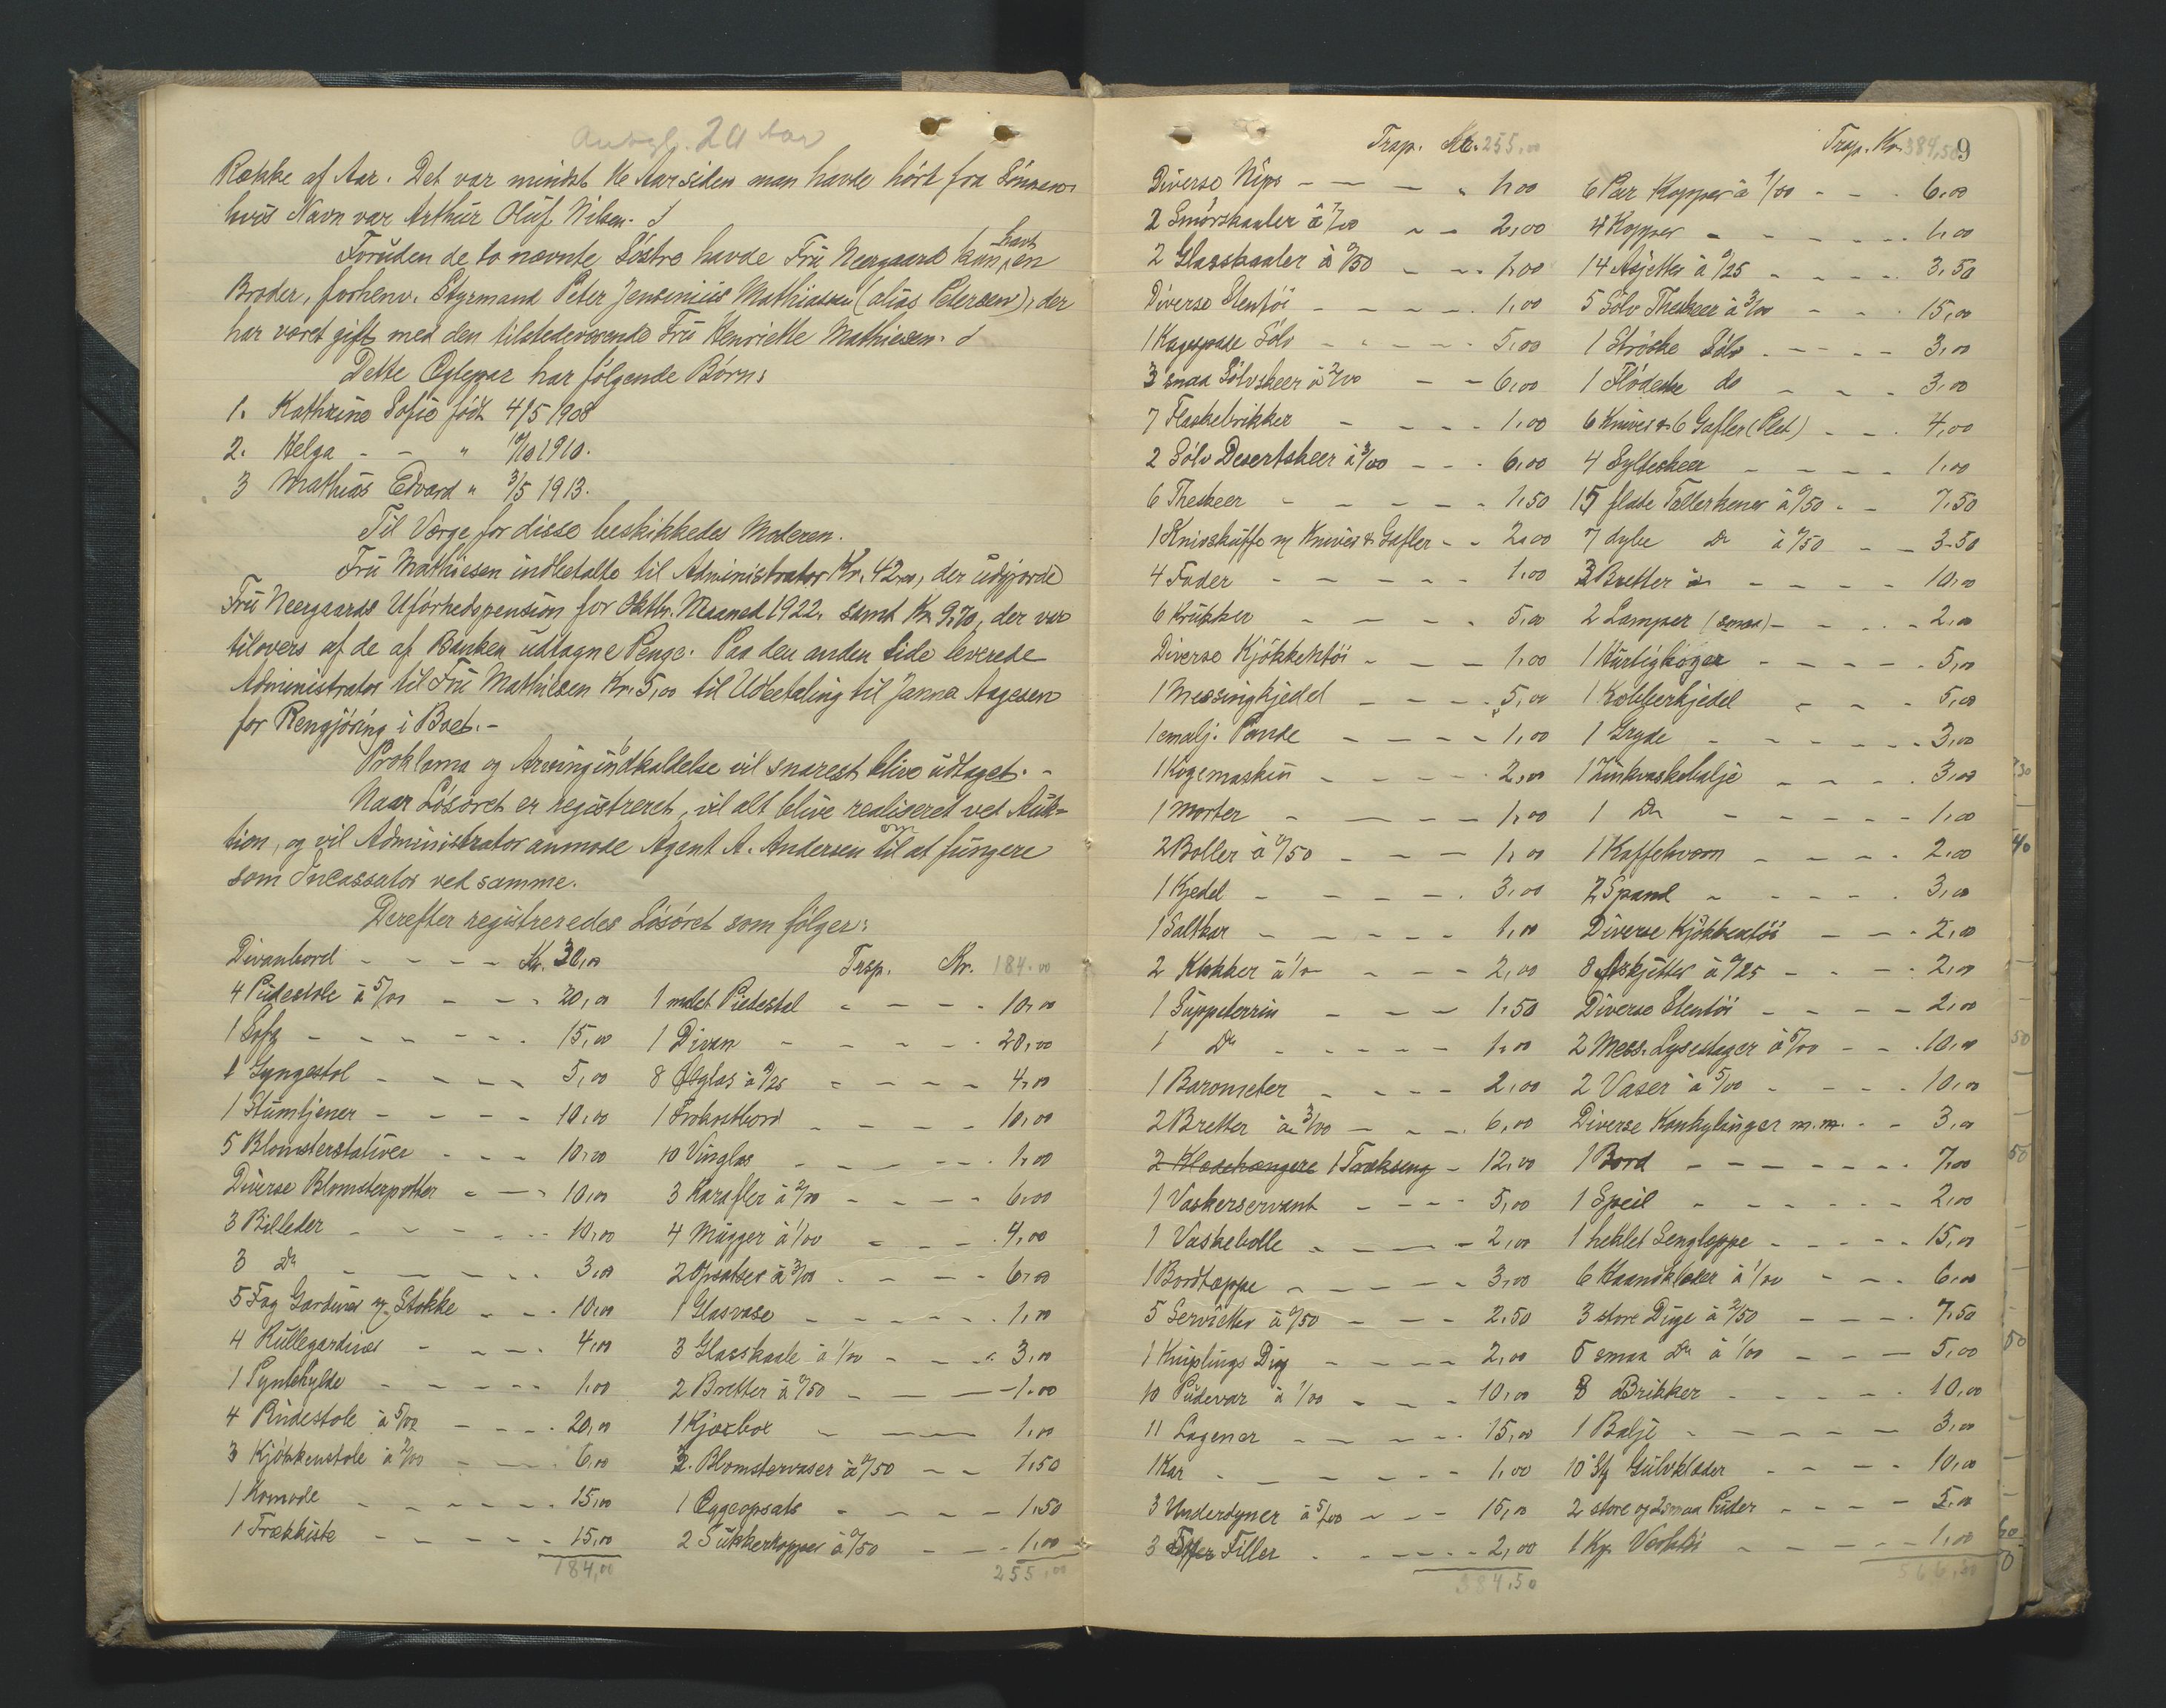 20 Aar
Række af Aar. Det var mindst 16 Aar siden man havde hört fra Sönnen,
hvis Navn var Arthur Oluf Nilsen.
Foruden de to nævnte Söstre havde Fru Neergaard kun havt en
Broder, forhenv. Styrmand Peter Jensinius Mathiasen (alias Petersen), der
har været gift med den tilstedeværende Fru Henriette Mathiesen.
Dette Ægtepar har følgende Börn:
1. Kathrine Sofie födt 4/5 1908
2. Helga - - " 1910.
3 Mathias Edvard " 3/5 1913.
Til Værge for disse beskikkedes Moderen.
Fru Mathiesen indbetalte til Administrator Kr. 42,00, der udgjorde
Fru Neergaards Uförhedspension for Oktbr. Maaned 1922. samt Kr 9,70, der var
tilovers af de af Banken udtagne Penge. Paa den anden Side leverede
Administrator til Fru Mathiesen Kr. 5,00 til Udbetaling til Janna Aagesen
for Rengjöring i Boet. -
Proklama og Arvingindkaldelse vil snarest blive udtaget. -
Naar Lösöret er registreret, vil alt blive realiseret ved Auk-
tion, og vil Administrator anmode Agent A. Andersen om at fungere
som Incassator ved samme.
Derefter registreredes Lösöret som fölger:
Divanbord - - - - Kr. 30,00
4 Pudestole à 5/00 - - - 20,00
1 Sofa - - - - - - 15,00
1 Gyngestol - - - - 5,00
1 Stumtjener - - - - 10,00
5 Blomsterstativer - - - 10,00
Diverse Blomsterpotter - - - 10,00
3 Billeder - - - - - 10,00
3 Do - - - - - 3,00
5 Fag Gardiner m/ Stokke - - - 10,00
4 Rullegardiner - - - - 4,00
1 Pyntehylde - - - - - 1,00
4 Rudestole à 5/00 - - - - 20,00
3 Kjökkenstole à 2/00 - - - 6,00
1 Komode - - - - - 15,00
1 Trækkiste - - - - - 15,00
184,00
Trsp. Kr. 184.00
1 malet Piedestal - - - - 10,00
1 Divan - - - - - 20,00
8 Ölglas à 0/25 - - - - 4,00
1 Frokostbord - - - - 10,00
10 Vinglas - - - - - 1,00
3 Karafler à 2/00 - - - - 6,00
4 Mugger à 1/00 - - - - 4,00
2 Opsatser à 3/00 - - - - 6,00
1 Glasvase - - - - - 1,00
3 Glasskaale à 1/00 - - - 3,00
2 Bretter à 0/50 - - - 1,00
1 Kjæxbox - - - 1,00
3 Blomstervaser à 0/50 - - 1,50
1 Æggeopsats - - - - 1,50
2 Sukkerkopper à 0/50 - - - 1,00
255,00
Trsp. Kr. 255,00
Diverse Nips - - - - 1,00
2 Smörskaaler à 1/00 - - 2,00
2 Glasskaaler à 0/50 - - - 1,00
Diverse Stentöi - - - - - 1,00
1 Kagespade Sölv - - - - - 5,00
3 smaa Sölvskeer à 2/00 - - 6,00
7 Flaskebrikker - - - - 1,00
2 Sölv Desertskeer à 3/00 - - - 6,00
6 Theskeer - - - - - 1,50
1 Knivskuffe m/ Knive & Gafler - - 2,00
4 Fader - - - - - 1,00
6 Krukker - - - - 5,00
Diverse Kjökkentöi - - - - 1,00
1 Messingkjedel - - - - 5,00
1 emalj. Pande - - - - 1,00
1 Kogemaskin - - - - - 2,00
1 Morter - - - - - 1,00
2 Boller à 0/50 - - - 1,00
1 Kjedel - - - - - 3,00
1 Saltkar - - - - - 1,00
2 Klokker à 1/- - - - 2,00
1 Suppeterrin - - - 1,50
1 Do - - - - - 1,00
1 Barometer - - - - 2,00
2 Bretter à 3/00 - - - 6,00
2 Klædehængere 1 Trækseng - 12,00
1 Vaskerservant - - - 5,00
1 Vaskebolle - - - - 2,00
1 Bordtæppe - - - - - 3,00
5 Servietter à 0/50 - - - 2,50
1 Kniplings Dug - - - - 2,00
10 Pudevar à 1/00 - - - 10,00
11 Lagener - - - - - 15,00
1 Kar - - - - - - 1,00
3 Underdyner à 5/00 - - - 15,00
3 Filler - - - - - 2,00
384,50
Trsp. Kr. 384,50
9
6 Par Kopper à 1/00 - - - 6,00
4 Kopper - - - - - - 1,00
14 Asjetter à 0/25 - - - - 3,50
5 Sölv Theskeer à 3/00 - - - 15,00
1 Ströske Sölv - - - - 3,00
1 Flödeske do - - - 3,00
6 Knive & 6 Gafler (Plet) - - - 4,00
4 Sylteskeer - - - - 1,00
15 flade Tallerkener à 0/50 - - 7,50
7 dybe Do à 0/50 - - 3,50
3 Bretter - - - - 10,00
2 Lamper (smaa) - - - - 2,00
1 Hurtigkoger - - - - - 5,00
1 Kobberkjedel - - - 5,00
1 Gryde - - - - - - 3,00
1 Zinkvaskebalje - - - - 3,00
1 Do - - - - - - 1,00
1 Kaffekværn - - - - 2,00
2 Spand - - - - - 3,00
Diverse Kjökkentöi - - - 2,00
8 Askjetter à 0/25 - - - - 2,00
Diverse Stentöi - - - - 2,00
2 Mess. Lysestager à 5/00 - - - 10,00
2 Vaser à 5/00 - - - - 10,00
Diverse Konkylinger m.m. - - 3,00
1 Bord - - - - - - - 7,00
1 Speil - - - - - - 2,00
1 heklet Sengtæppe - - - - - 15,00
6 Haandklæder à 1/00 - - - 6,00
3 store Duge à 2/50 - - - - 7,50
5 smaa Do à 1/00 - - - 5,00
8 Brikker - - - - - 10,00
1 Balje - - - - - - 3,00
10 Stk Gulvklæder - - - - 10,00
2 store og 2 smaa Puder - - - - 5,00
1 Kp. Vasktöi - - - - - 1,00
566,50